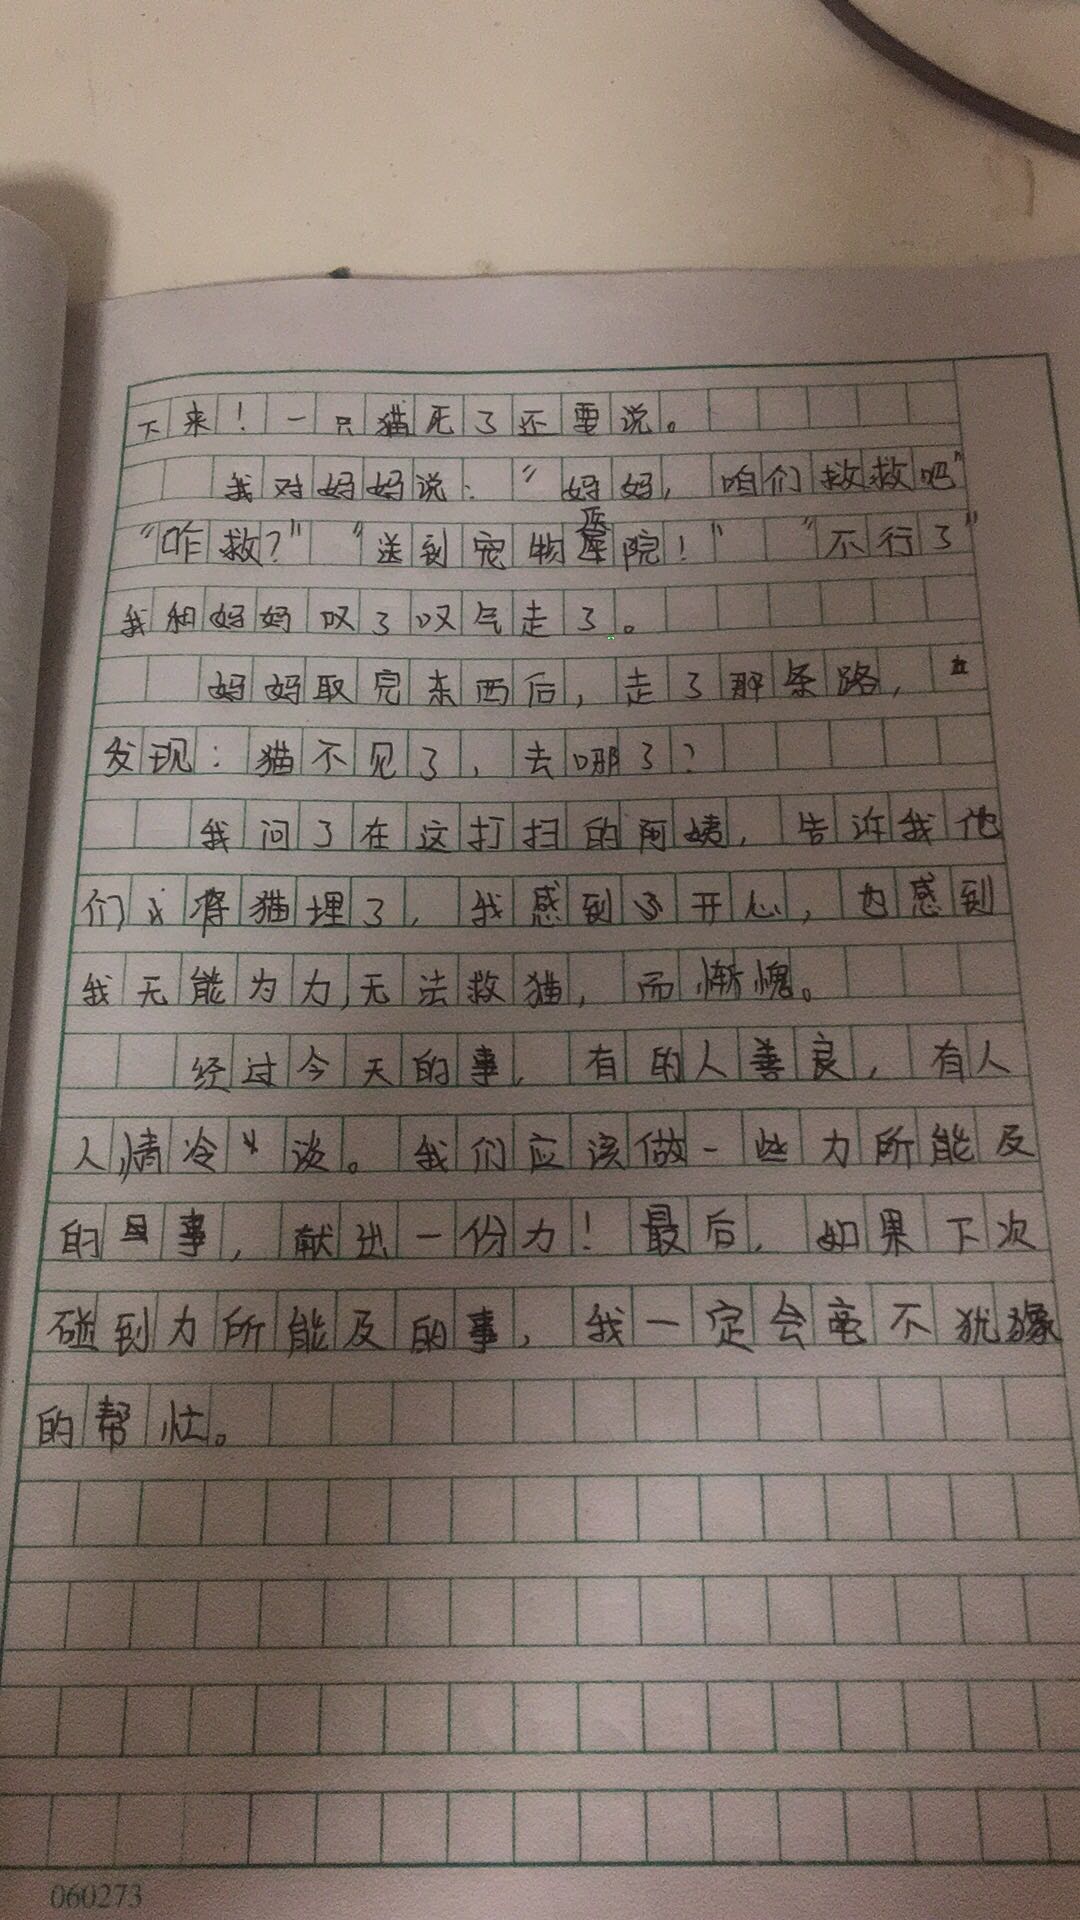 下来！一只猫死了还要说。
我对妈妈说：“妈妈，咱们救救吧”
“咋救？”“送到宠物医院！”“不行了”
我和妈妈叹了叹气走了。
妈妈取完东西后，走了那条路，
发现：猫不见了，去哪了？
我问了在这打扫的阿姨，告诉我他
们将猫埋了，我感到开心，也感到
我无能为力，无法救猫，而惭愧。
经过今天的事，有的人善良，有人
人情冷淡。我们应该做一些力所能及
的事，献出一份力！最后，如果下次
碰到力所能及的事，我一定会毫不犹豫
的帮忙。
060273